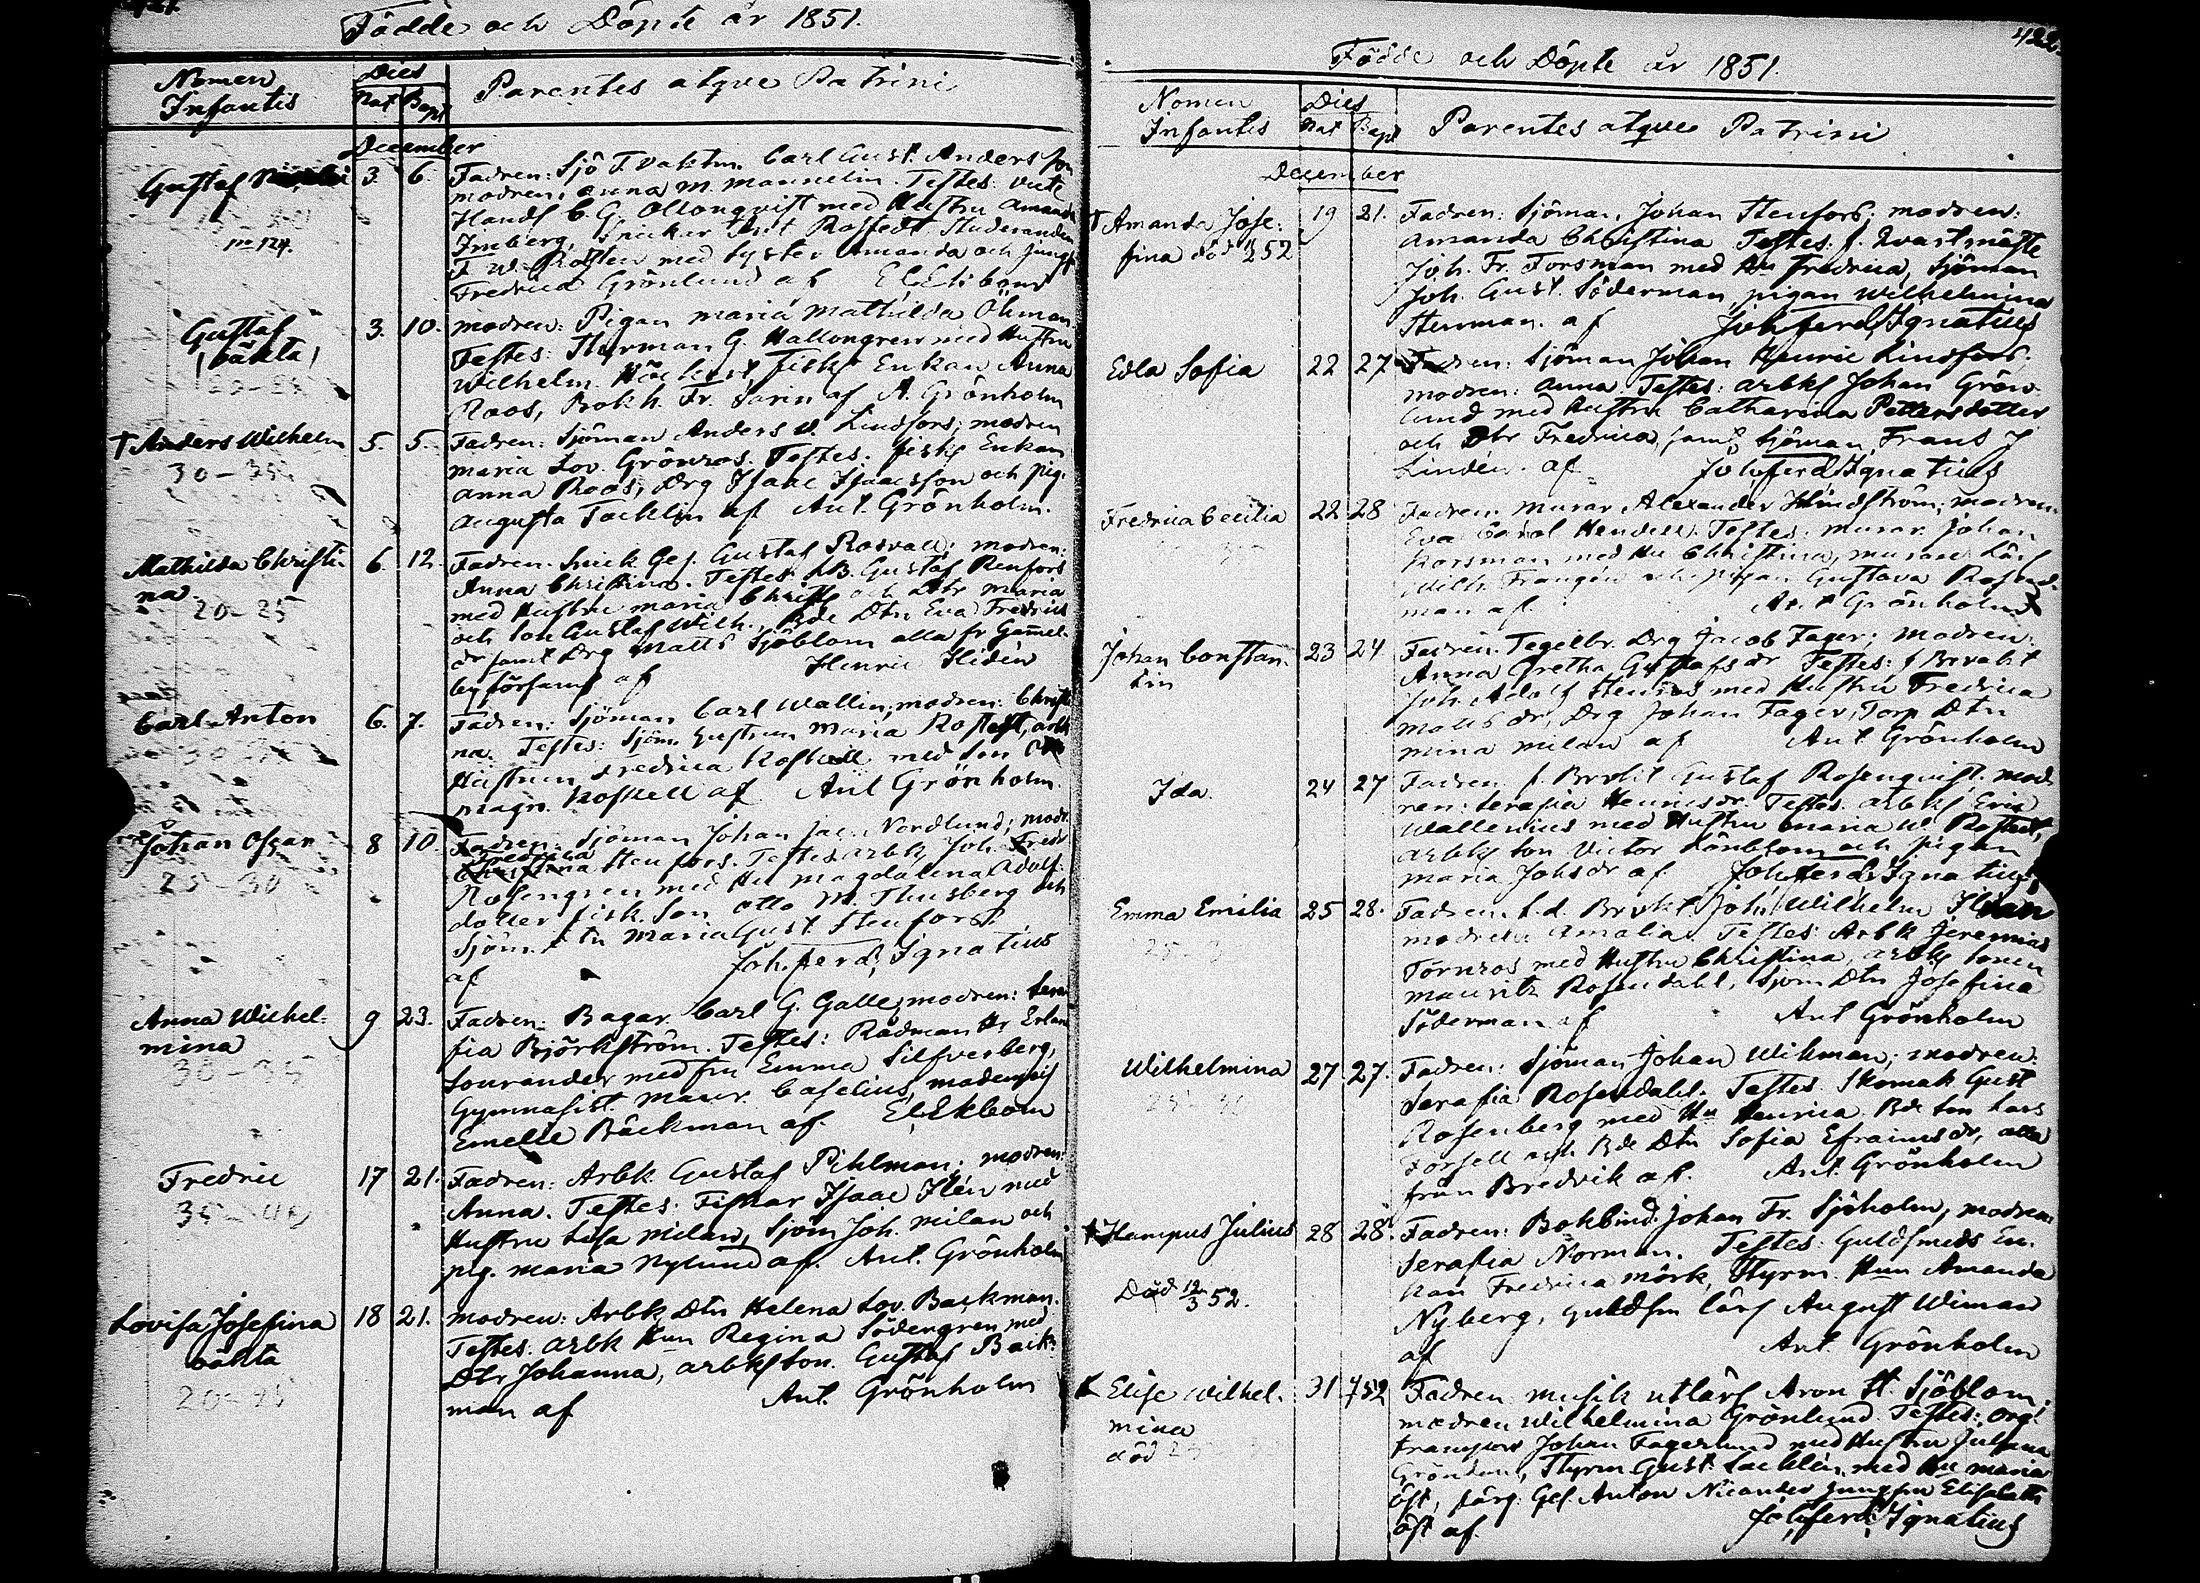 421.
Födde och Döpte år 1851.
Nomen Infantis
Dies
Nat Bapt
Parentes atque Patrini
December
Gustaf 3. 6. Fadren: Sjö T. vaktm. Carl Gust. Andersson
modren, anna M. Mannelin. Testes:
Handl C. G. Ollonqvist med Hustru Amanda
Imberg, Rostedt Studeranden
F. W. med syster Amanda och jungf
Fredrica Grönlund af
Gustaf 3. 10. modren: Pigan maria Mathilda Öhman
(oäkta) Testes: Styrman G. Hallongren med Hustru
Wilhelm. fisk Enkan Anna
Roos, Bokh. Fr. Sarin af A. Grönholm
† Anders Wilhelm 5. 5. Fadren: Sjöman Anders W. Lindfors; modren
30-35 maria Lov. Grönros. Testes. fisks Enkan
anna Roos, Drg Isaac Isaacsson och pig.
augusta Tacklin af Ant. Grönholm.
Mathilda Christi- 6 12. Fadren. Snick Ges. Gustaf Rosvall; modren:
na Anna Christina. Testes LB. Gustaf Renfors
20-25 med Hustru maria Christ och Dtr maria
och son Gustaf Wilh., Bde Dtn Eva Fredrica
dr samt Drg Matts Sjöblom alla fr Gammel-
by församl af Henric Hidén
Carl Anton 6. 7. Fadren: Sjöman Carl Wallin; modren: Christi
na. Testes: Sjöm Hustrun Maria Rostedt, arbk
Hustrun Fredrica Roskell med son Otto
magn. Roskell af Ant Grönholm.
Johan Oscar 8 10. Fadren: Sjöman Johan Jac. Nordlund; modr.
25-30 Fredrica
Christina Stenfors. Testes arbk Joh. Fredr
Rosengren med Hu Magdalena Adolfs
dotter fisk. son Otto M. Thusberg och
Sjöm. Dtn Maria Gust Stenfors
af Joh. Ferd. Ignatius
Anna Wilhel- 9 23. Fadren: Bagar. Carl G. Galle; modren: Sera-
mina fia Björkström. Testes: Rådman Hr Erlan
30-35 Sourander med fru Emma Silfverberg,
Gymnasist. Maur. Caselius, mademois
Emelie Bäckman af. El Ekbom
Fredric 17 21. Fadren: Arbk. Gustaf Pihlman; modren:
35-40 Anna. Testes: Fiskar Isaac Ilén med
Hustru Lisa Milan, Sjöm Joh. Milan och
pig. maria Nylund af. Ant. Grönholm
Lovisa Josefina 18 21. modren: Arbk Dtn Helena Lov. Backman.
oäkta Testes: arbk Hun Regina Södergren med
20-25 Dtr Johanna, arbks son. Gustaf Back-
man af Ant. Grönholm
422.
Födde och Döpte år 1851.
Nomen Infantis
Dies
Nat Bapt
Parentes atque Patrini
December
† Amanda Jose- 19 21. Fadren: Sjöman Johan Stenfors; modren:
fina död 52 Amanda Christina Testes: f. Qvartmäst
Joh. Fr. Forsman med Hu Fredrica, Sjöman
Joh. Gust. Söderman, pigan Wilhelmina
Stenman. af Joh. Ferd. Ignatius
Edla Sofia 22 27 Fadren: Sjöman Johan Henric Lindfors;
modren: Anna. Testes: arbks Johan Grön-
lund med Hustru Catharina Pettersdotter
och Dtr Fredrica, samt Sjöman Frans J
Lindén. af Joh. Ferd. Ignatius
Fredrica Cecilia 22 28 Fadren: Murar. Alexander Lindström; modren
Eva Carol Hendell. Testes: murar. Johan
Korsman med Hu Christina, murare Lärl
Wilh. Frangén och pigan Gustava
man af Ant Grönholm
Johan Constan- 23 24 Fadren. Tegelbr. Drg Jacob Fager; modren:
tin Anna Gretha Gustafs dr Testes:
Joh. Adolf Stenros med Hustru Fredrica
Matts dr, Drg Johan Fager, Torp Dtn
mina Milan af Ant Grönholm
Ida. 24 27 Fadren Gustaf Rosenqvist mod-
ren: Serafia Henricsdr Testes. arbks Eric
Wallenius med Hustru Maria W. Rostedt,
arbks son Victor Lönblom och pigan
Maria Johsdr af Joh. Ferd. Ignatius
Emma Emilia 25 28. Fadren. Joh. Wilhelm
modren Amalia. Testes: Arbk Jeremias
Törnros med Hustru Christina, arbks sonen
Mauritz Rosendahl, Sjöm Dtn Josefina
Söderman af Ant Grönholm
Wilhelmina 27 27. Fadren: Sjöman Johan Wikman; modren:
Serafia Rosendahl. Testes: Skomak Gust
Rosenberg med Hu Henrica. Bde son Lars
Forsell och Bde Dtn Sofia Efraimsdr, alla
från Bredvik af. Ant. Grönholm
† Hampus Julius 28 28. Fadren: Bokbind. Johan Fr. Sjöholm; modren:
Död 12/3 52. Serafia Norman. Testes: Guldsmeds En-
kan Fredrica Mörk, Styrm. Hun Amanda
Nyberg, guldsm lärl August Wiman
af Ant Grönholm
Elise Wilhel- 31 Fadren musik utlärl Aron St. Sjöblom.
mina modren Wilhelmina Grönlund. Testes: org.
död Johan Fagerlund med Hustru Juliana
Gröndahl, Styrm Gust. Lacklén, med Hu maria
Öst, färg. Ges. Anton Nicander Jungfru Elisabeth
Öst af Joh. Ferd. Ignatius